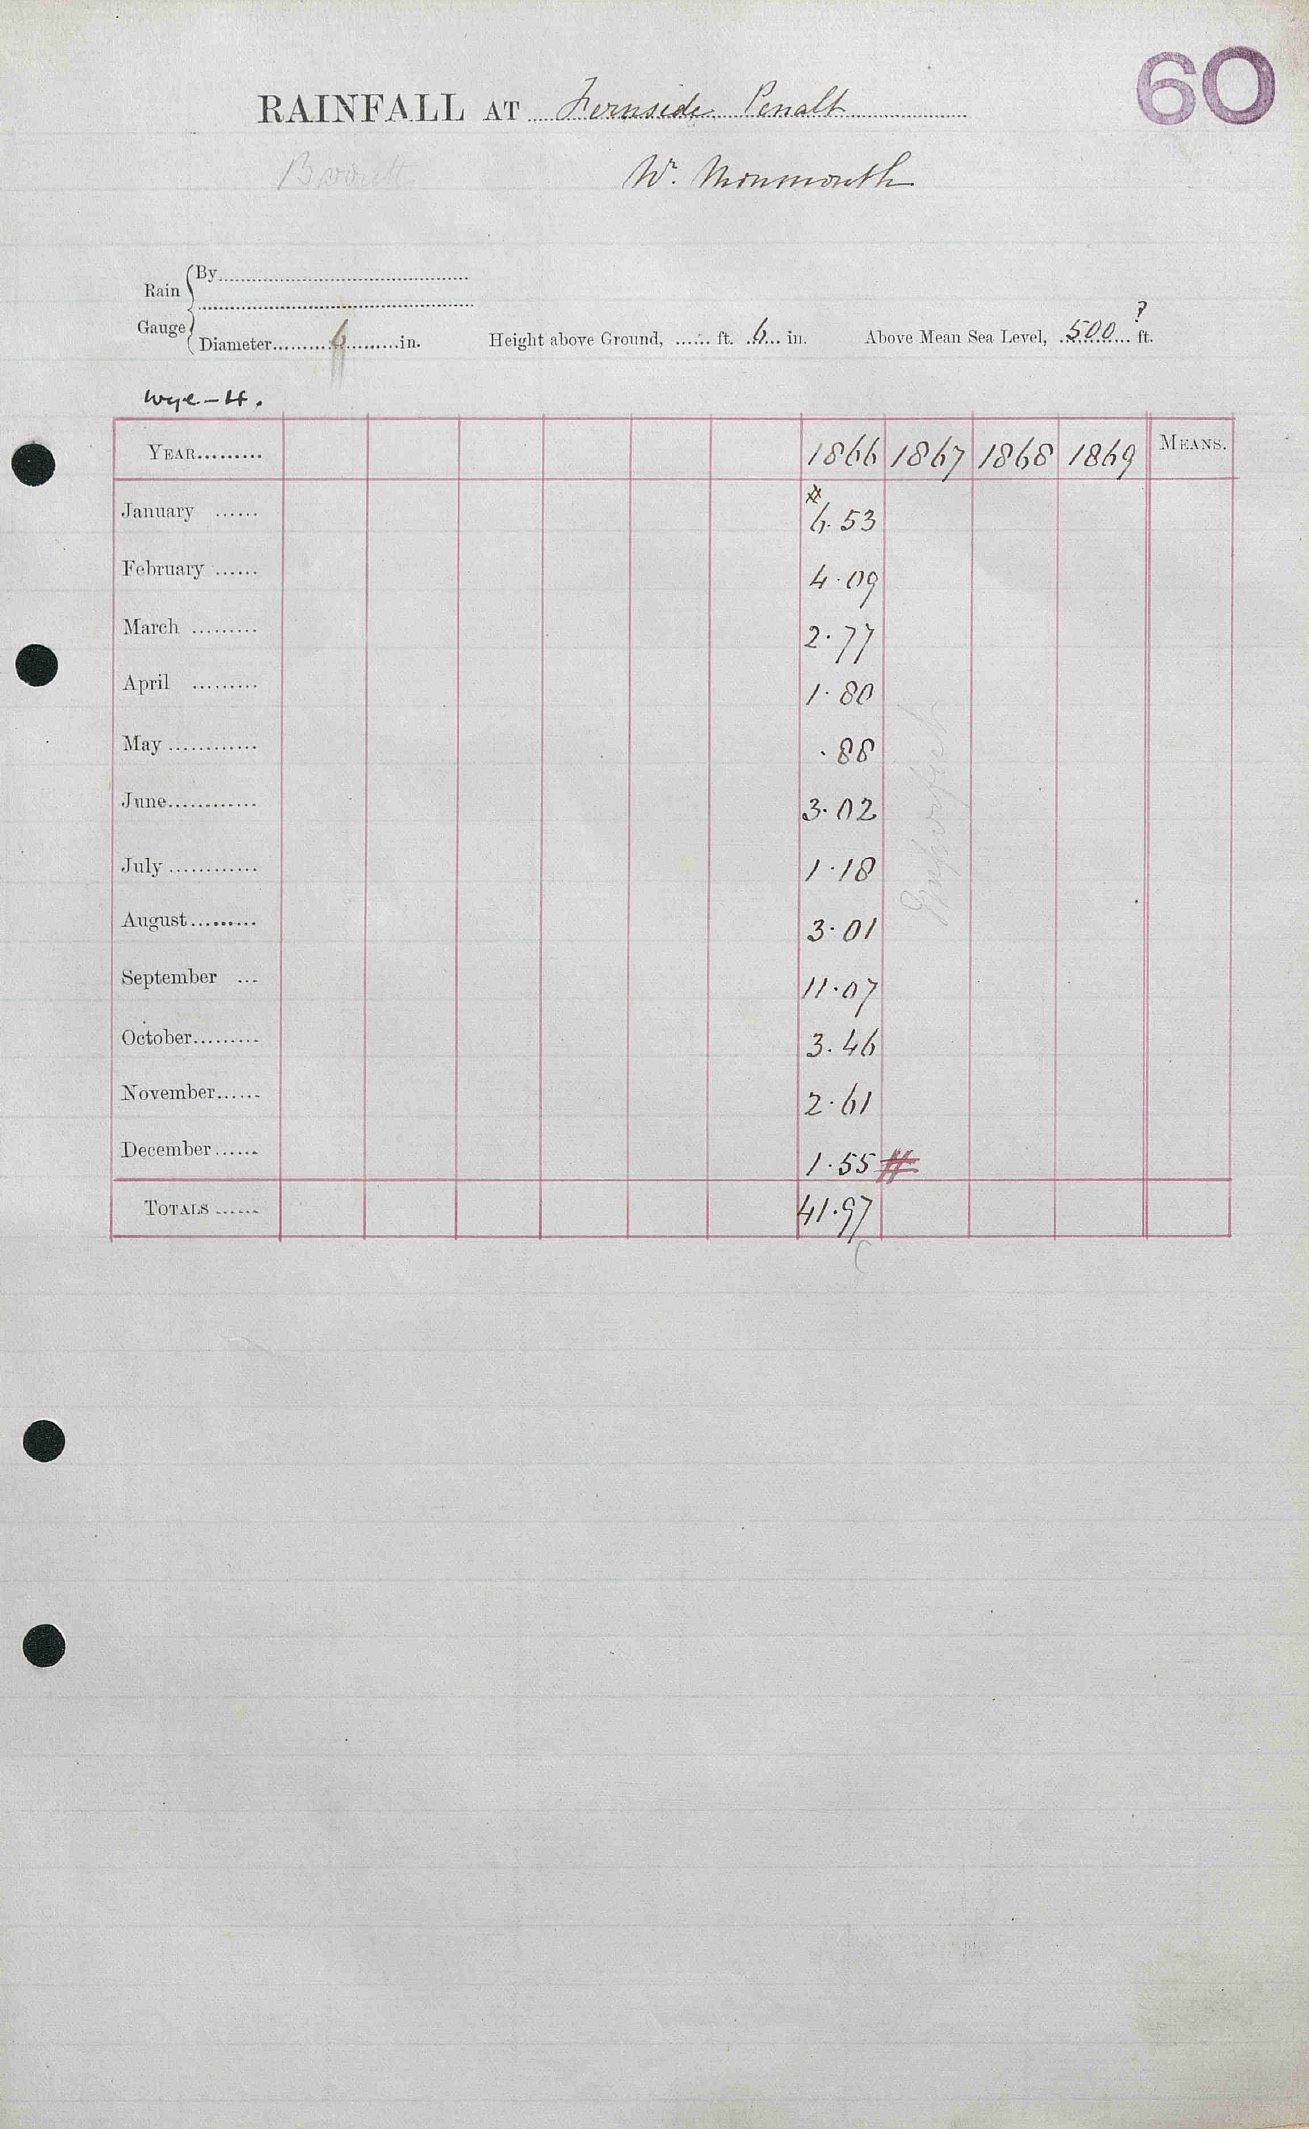 60
RAINFALL AT Fernside Penalt
Barrett Wr. Monmouth
Rain Gauge { By
Diameter 6 in. Height above Ground, ft. 6 in. Above Mean Sea Level, 500 ? ft.
Wye - 4.
YEAR 1866 1867 1868 1869 MEANS.
January # 6.53
February 4.09
March 2.77
April 1.80
May .88
June 3.02
July 1.18
August 3.01
September 11.07
October 3.46
November 2.61
December 1.55 #
TOTALS 41.97
Imperfect